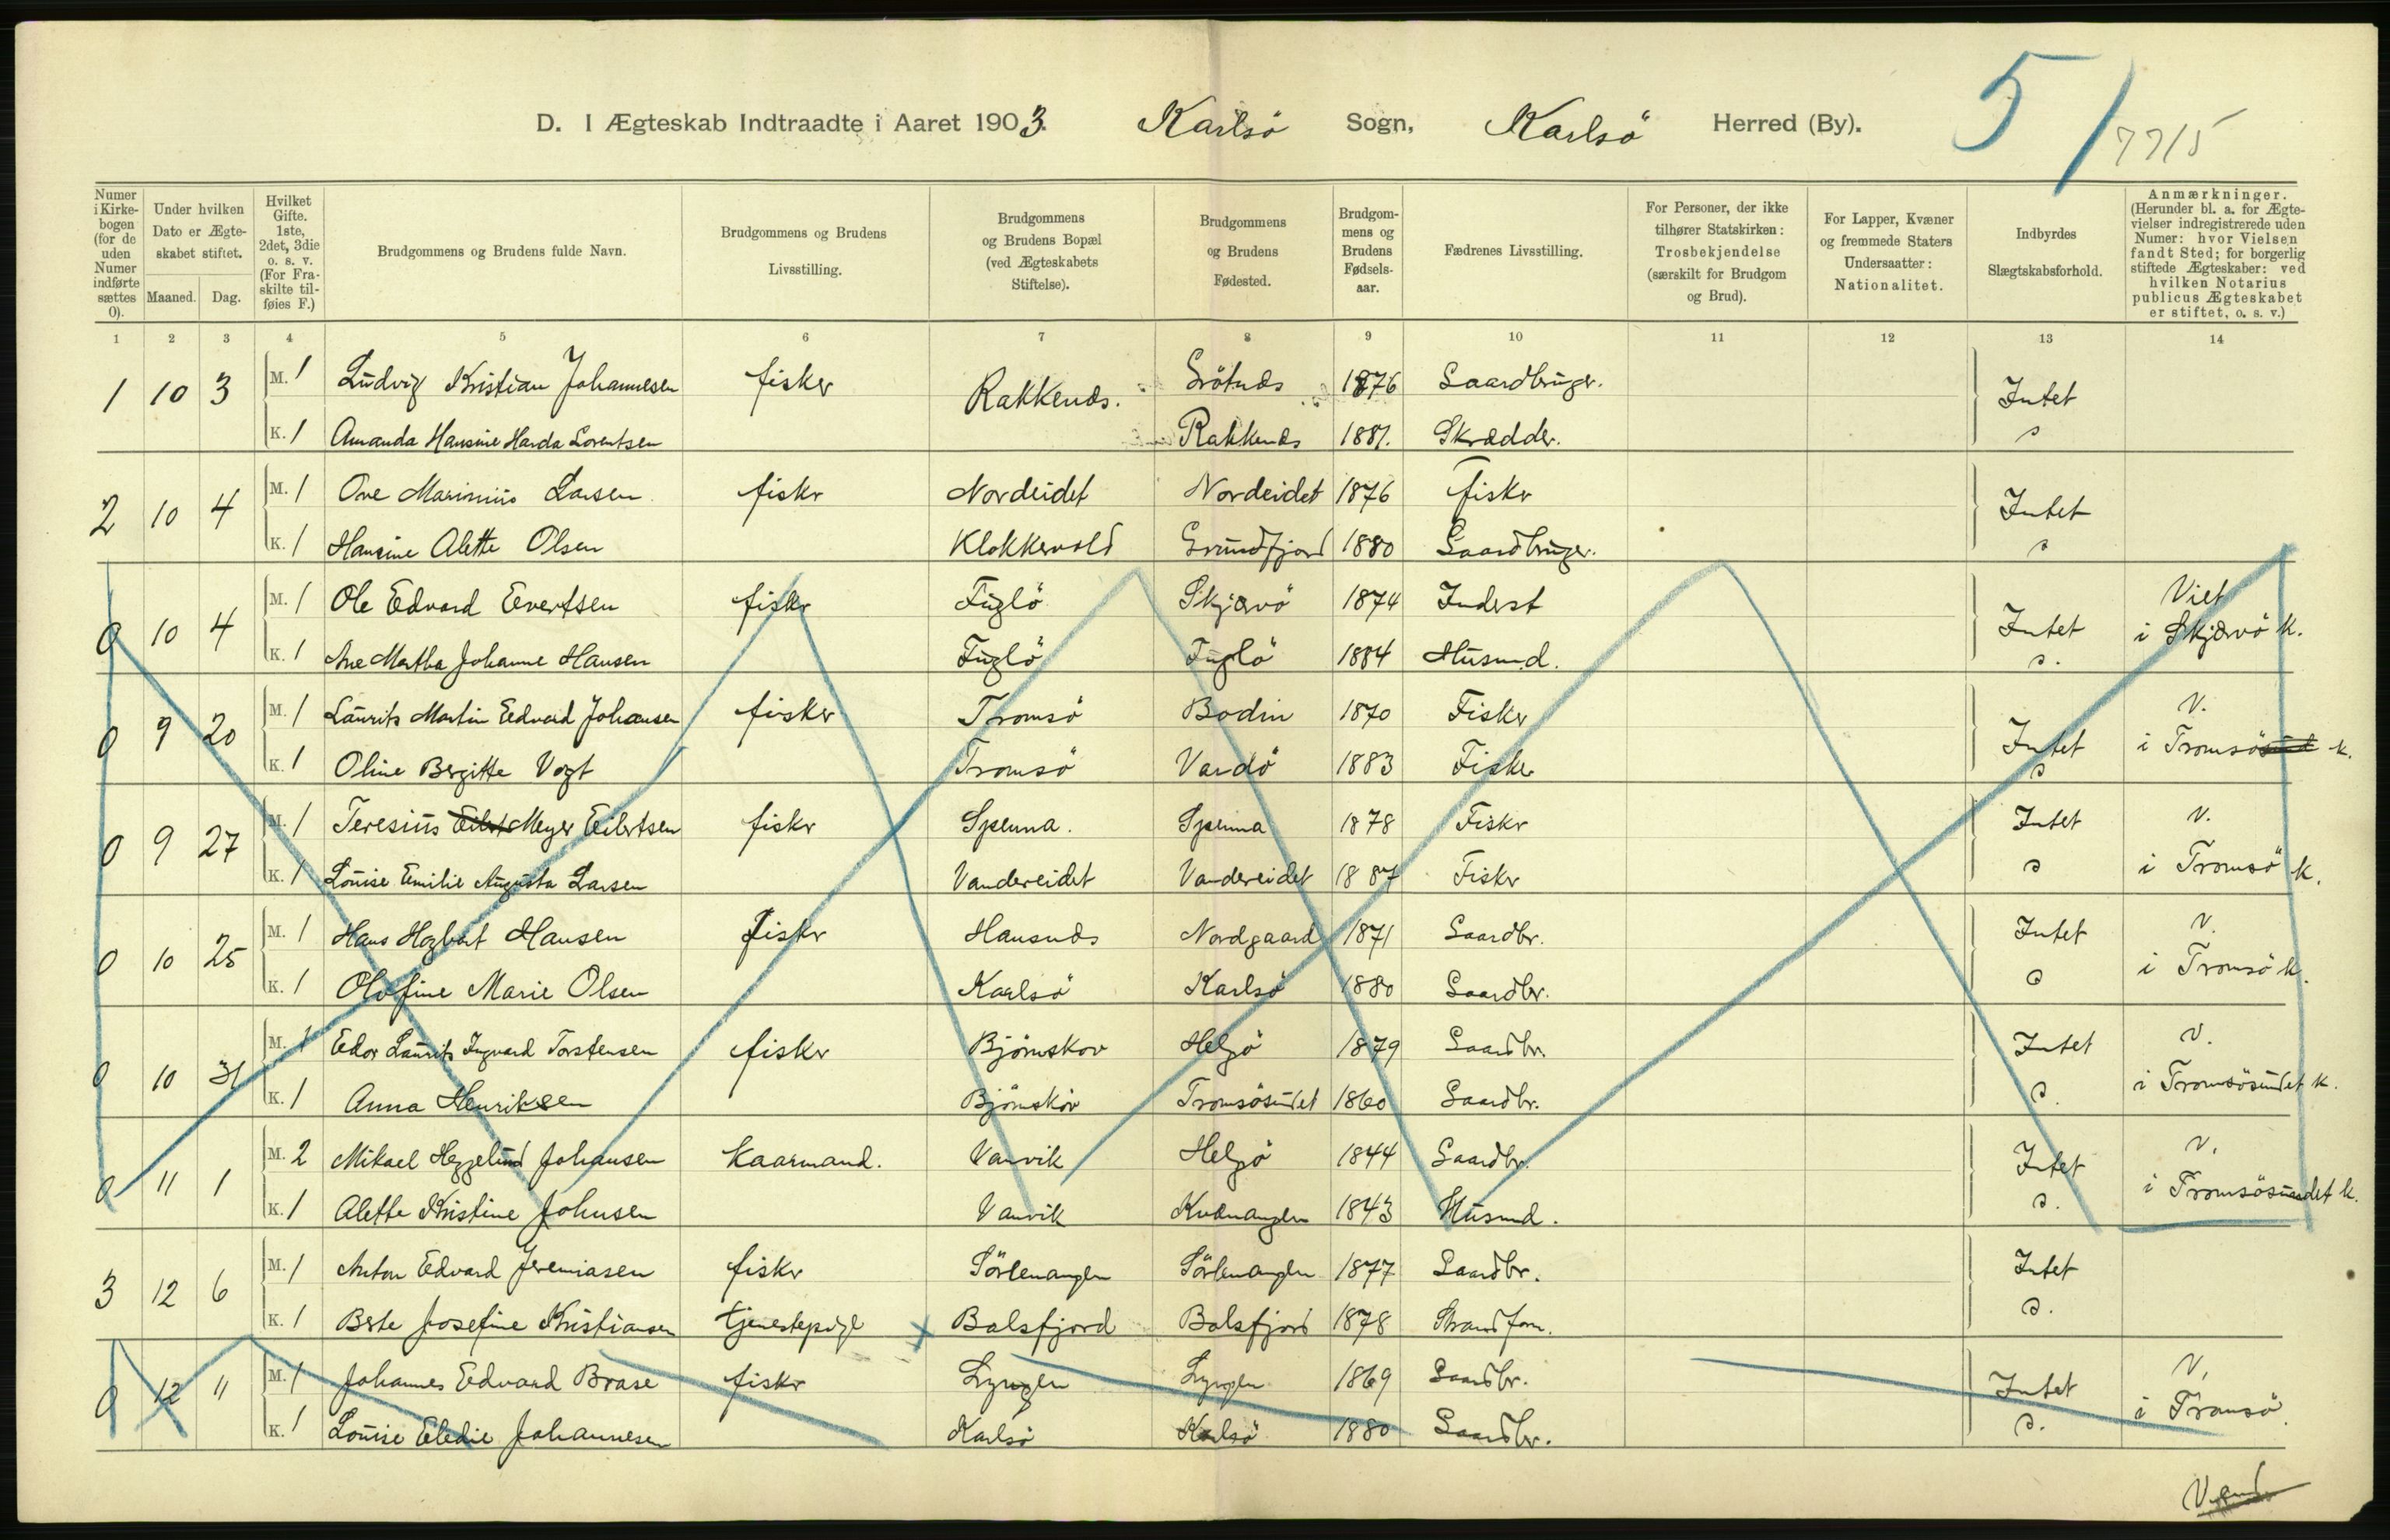 5/
7715
D. I Ægteskab Indtraadte i Aaret 1903. Karlsö Sogn, Karlsö Herred (By).
Numer i Kirke-bogen (for de uden Numer indførte sættes 0).
Under hvilken Dato er Ægte-skabet stiftet.
Maaned. Dag.
Hvilket Gifte. 1ste, 2det, 3die o. s. v. (For Fra-skilte til-føies F.)
Brudgommens og Brudens fulde Navn.
Brudgommens og Brudens Livsstilling.
Brudgommens og Brudens Bopæl (ved Ægteskabets Stiftelse).
Brudgommens og Brudens Fødested.
Brudgom-mens og Brudens Fødsels-aar.
Fædrenes Livsstilling.
For Personer, der ikke tilhører Statskirken: Trosbekjendelse (særskilt for Brudgom og Brud).
For Lapper, Kvæner og fremmede Staters Undersaatter: Nationalitet.
Indbyrdes Slægtskabsforhold.
Anmærkninger. (Herunder bl. a. for Ægte-vielser indregistrerede uden Numer: hvor Vielsen fandt Sted; for borgerlig stiftede Ægteskaber: ved hvilken Notarius publicus Ægteskabet er stiftet, o. s. v.)
1 2 3 4 5 6 7 8 9 10 11 12 13 14
1 10 3 M. 1 Ludvig Kristian Johannesen fisker Rakkenæs. Grötnæs 1876 Gaardbruger. Intet
K. 1 Amanda Hansine Harda Lorentsen Rakkenæs 1881. Skrædder. s
2 10 4 M. 1 Ove Marinius Larsen fisker Nordeidet Nordeidet 1876 fisker Intet
K. 1 Hansine Alette Olsen Klokkervold Grundfjord 1880 Gaardbruger. s
0 10 4 M. 1 Ole Edvard Evertsen fisker Fuglö Skjærvö 1874 Inderst Intet Viet
K. 1 Ane Martha Johanne Hansen Fuglö Fuglö 1884 Husmd. s. i Skjærvö k.
0 9 20 M. 1 Laurits Martin Edvard Johansen fisker Tromsö Bodin 1870 Fisker Intet V.
K. 1 Oline Bergitte Vogt Tromsö Vardö 1883 Fisker s i Tromsösund k.
0 9 27 M. 1 Teresius Eilert Meyer Eilertsen fisker Spenna. Spenna 1878 Fisker Intet V.
K. 1 Louise Emilie Augusta Larsen Vandereidet Vandereidet 1887 Fisker s i Tromsö k.
0 10 25 M. 1 Hans Hagbart Hansen fisker Hansnæs Nordgaard 1871 Gaardbr. Intet V.
K. 1 Olofine Marie Olsen Karlsö Karlsö 1880 Gaardbr. s i Tromsö k.
0 10 31 M. 1 Edor Laurits Ingvard Torstensen fisker Björnskov Helgö 1879 Gaardbr. Intet V.
K. 1 Anna Henriksen Björnskov Tromsösundet 1860 Gaardbr. s. i Tromsösundet k.
0 11 1 M. 2 Mikael Heggelund Johansen Kaarmand. Vanvik Helgö 1844 Gaardbr. Intet V.
K. 1 Alette Kristine Johnsen Vanvik Kvænangen 1843 Husmd. s. i Tromsösundet k.
3 12 6 M. 1 Anton Edvard Jeremiasen fisker Sörlenangen Sörlenangen 1877 Gaardbr. Intet
K. 1 Berte Josefine Kristiansen tjenestepige x Balsfjord Balsfjord 1878 Strandfom. s.
0 12 " M. 1 Johannes Edvard Brose fisker Lyngen Lyngen 1869 Gaardbr. Intet V.
K. 1 Louise Eledie Johannesen Karlsö Karlsö 1880 Gaardbr. s. i Tromsö.